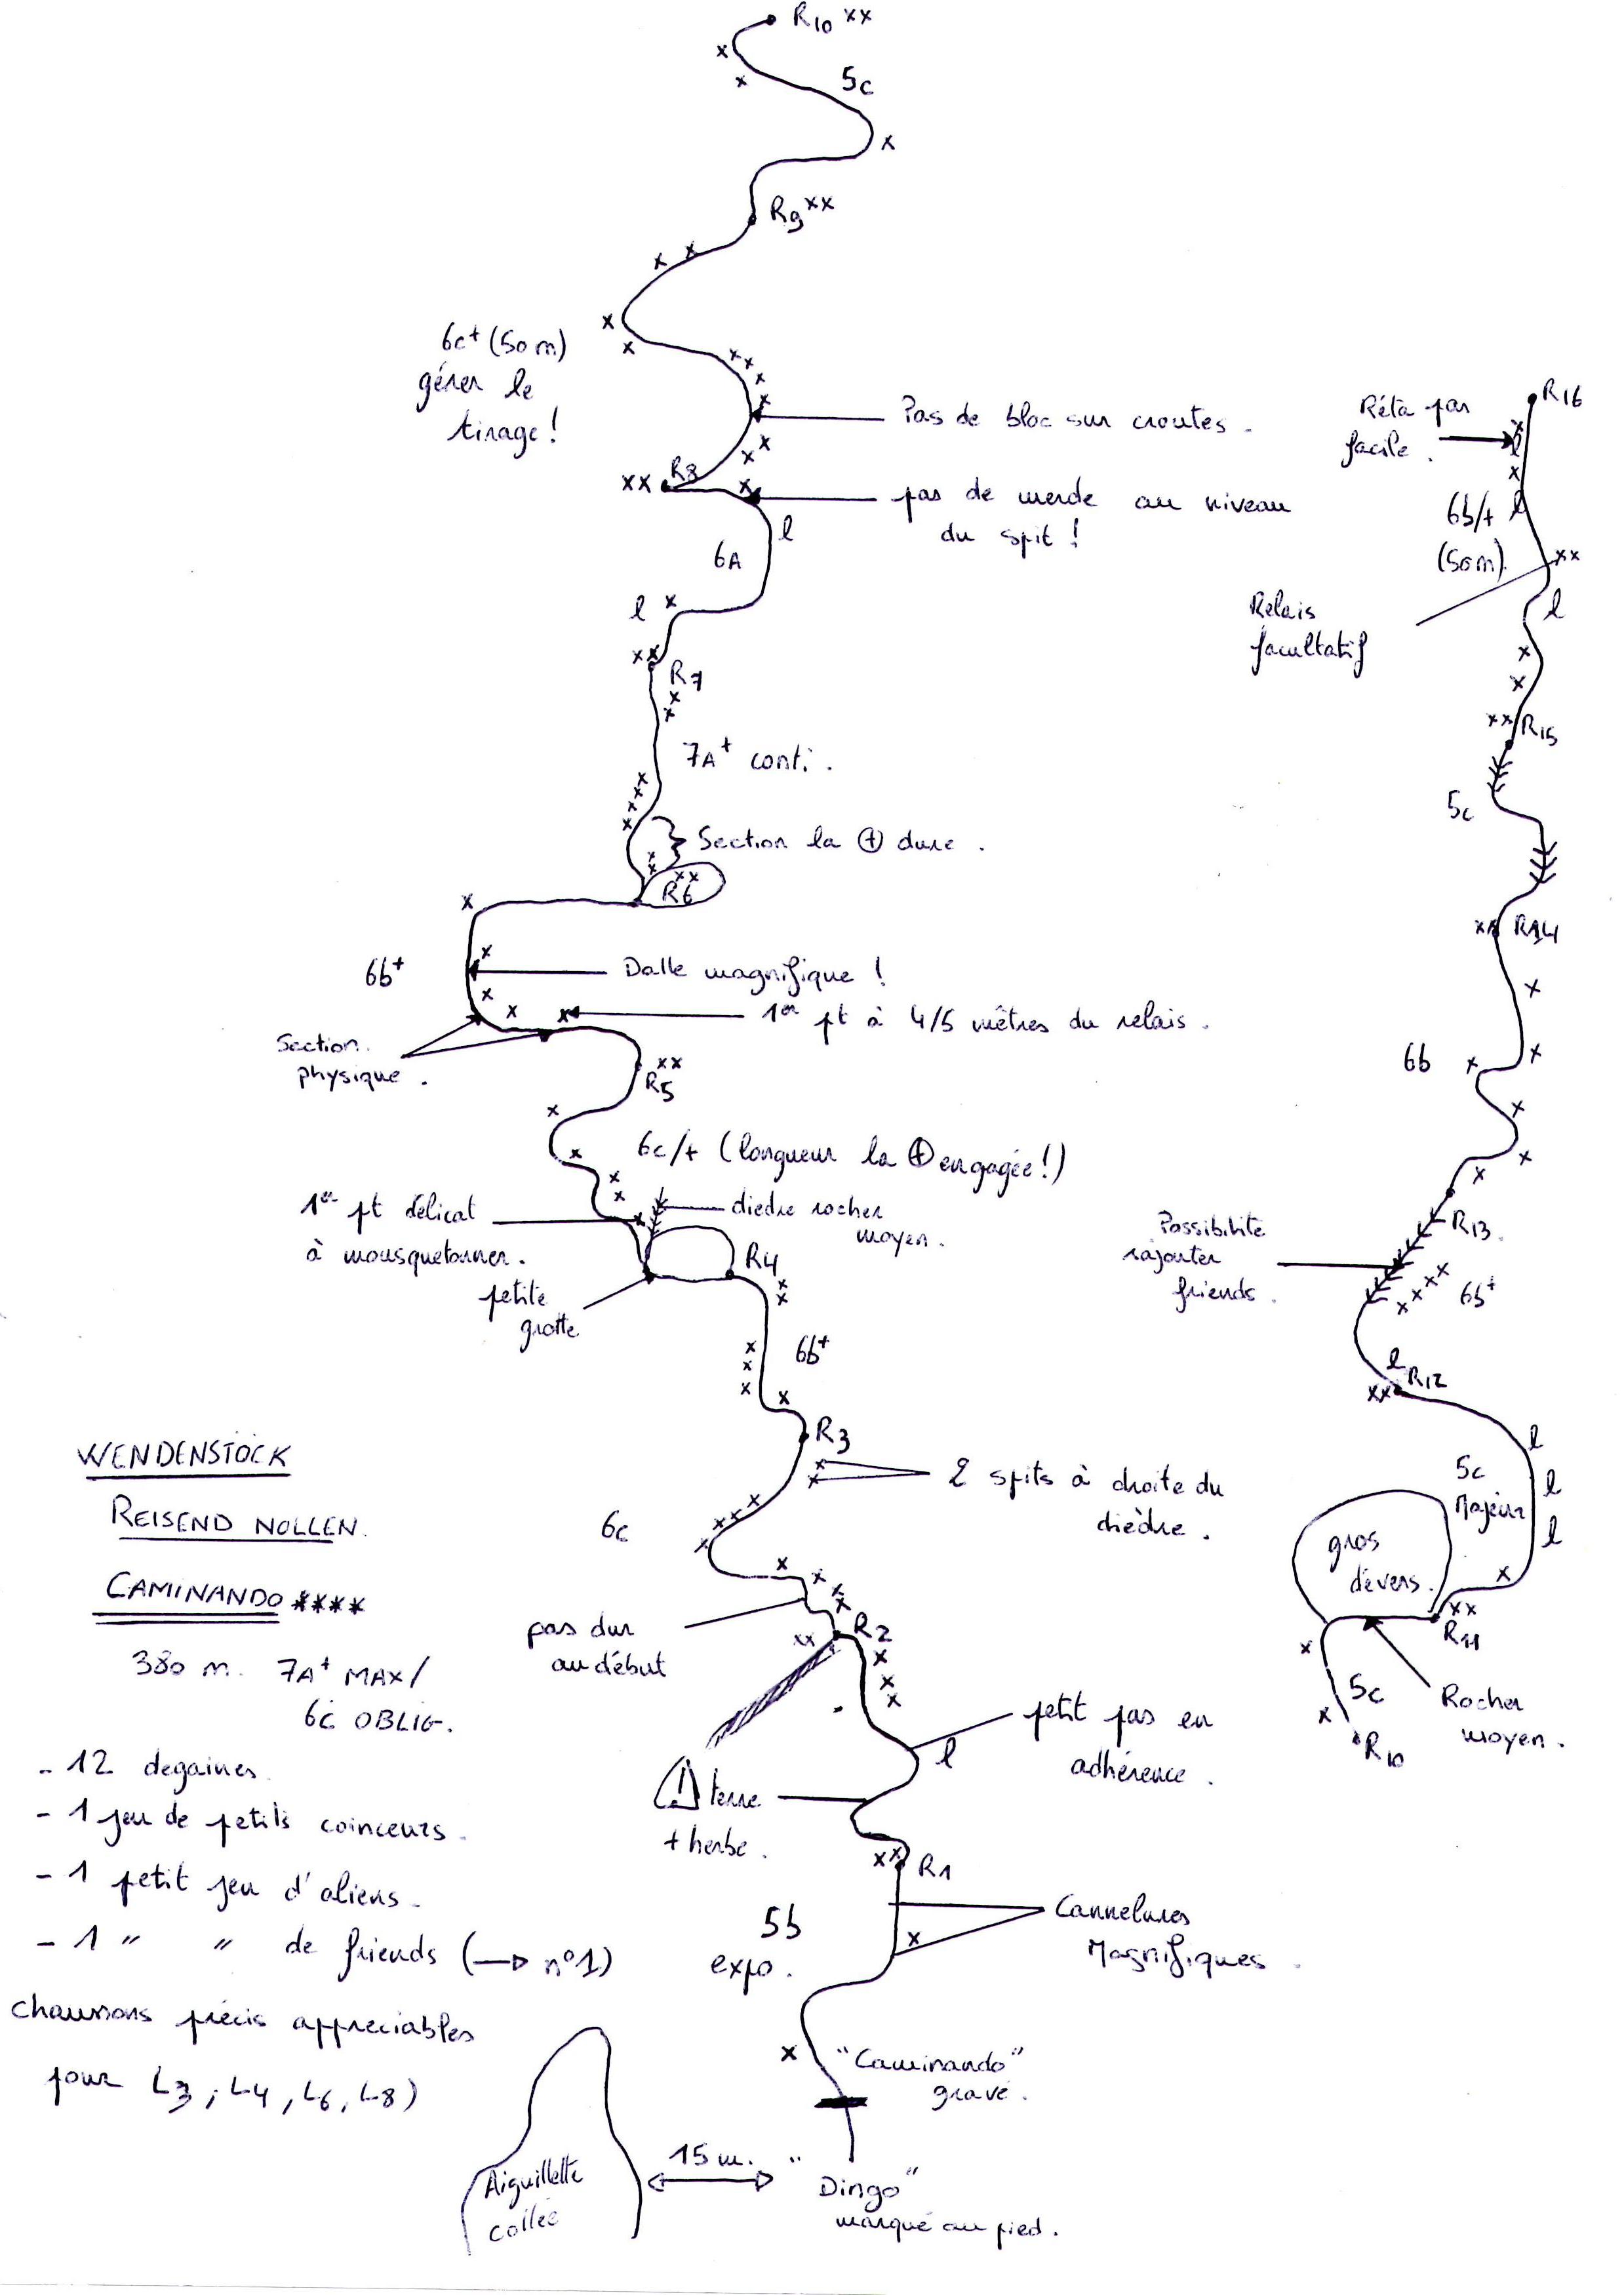 R10 xx
5c
R9 xx
6c+ (50 m)
gérer le
tirage !
Pas de bloc sur croutes.
xx R8
pas de merde au niveau
du spit !
6A
R7
7A+ conti.
Section la + dure.
R6
6b+
Dalle magnifique !
1er pt à 4/5 mètres du relais.
Section
physique.
R5
6c/+ (longueur la + engagée !)
1er pt délicat
à mousquetonner.
diedre rocher
moyen.
R4
petite
grotte
6b+
R3
2 spits à droite du
dièdre.
6c
pas dur
au début
R2
petit pas en
adhérence.
! terre
+ herbe.
R1
5b
expo.
Cannelures
Magnifiques
"Caminando"
gravé.
15 m.
"Dingo"
marqué au pied.
Aiguillette
collée
R16
Réta pas
facile.
6b/+
(50m)
Relais
facultatif
R15
5c
R14
6b
R13
Possibilité
rajouter
friends.
6b+
R12
5c
Majeur
gros
dévers.
R11
5c
Rocher
moyen.
R10
WENDENSTOCK
REISEND NOLLEN.
CAMINANDO ****
380 m. 7A+ MAX/
6c OBLIG.
- 12 degaines.
- 1 jeu de petits coinceurs.
- 1 petit jeu d'aliens.
- 1 " " de friends (→ n°1)
chaussons précis appreciables
pour L3, L4, L6, L8)